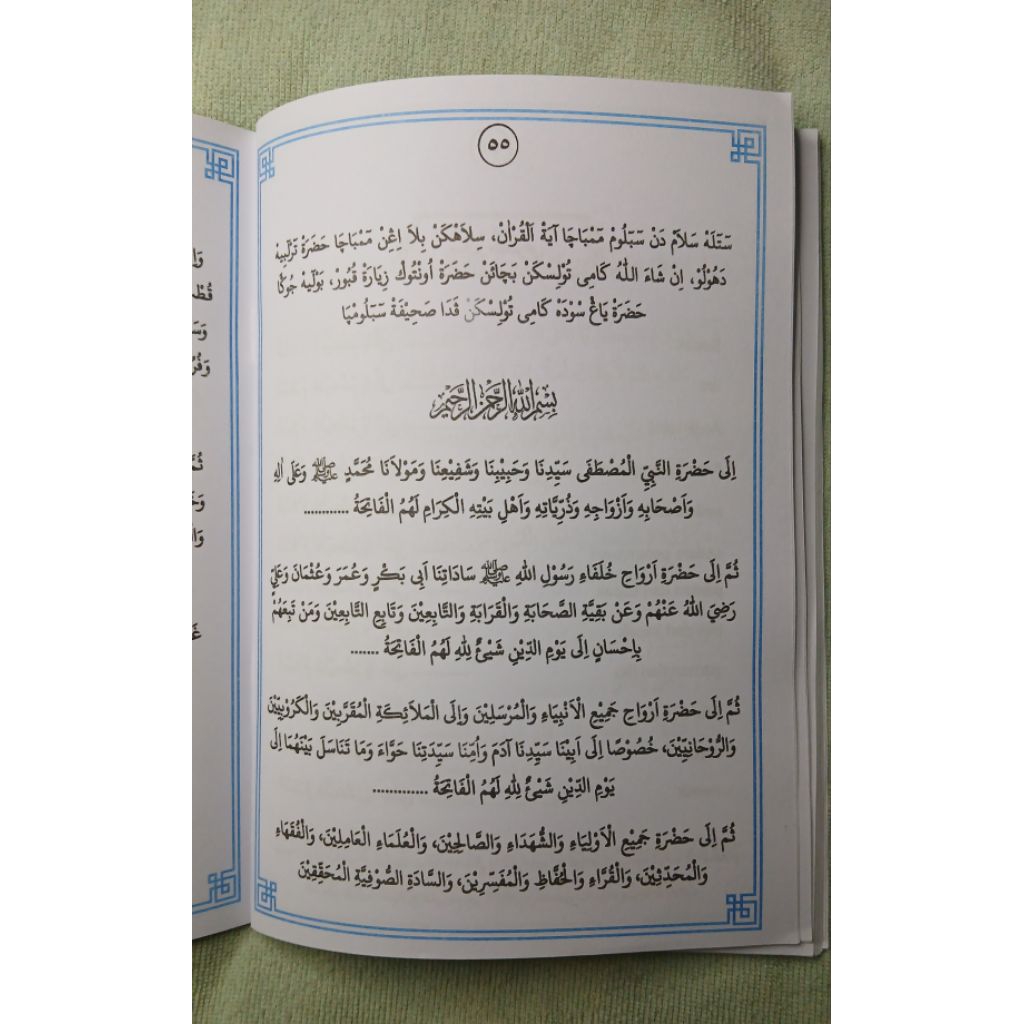 ٥٥
سَتَلَهْ سَلاَمْ دَنْ سَبَلُومْ مَمْبَاچَا آيَةْ اَلْقُرْاٰنْ، سِلاَهْكَنْ بِلاَ اِڠِنْ مَمْبَاچَا حَضْرَةْ تَرْلَبِيْهْ
دَهُوْلُوْ، اِنْ شَاءَ اللّٰهُ كَامِى تُوْلِسْكَنْ بَچَائَنْ حَضْرَةْ اُونْتُوكْ زِيَارَةْ قُبُورْ، بَوْلَيْهْ جُوڬَا
حَضْرَةْ يَاڠْ سُوْدَهْ كَامِى تُوْلِسْكَنْ ڤَدَا صَحِيْفَةْ سَبَلُومْپَا
بِسْمِ اللّٰهِ الرَّحْمٰنِ الرَّحِيْمِ
اِلَى حَضْرَةِ النَّبِيِّ الْمُصْطَفَى سَيِّدِنَا وَحَبِيْبِنَا وَشَفِيْعِنَا وَمَوْلَانَا مُحَمَّدٍ ﷺ وَعَلَى اٰلِهِ
وَاَصْحَابِهِ وَاَزْوَاجِهِ وَذُرِّيَّاتِهِ وَاَهْلِ بَيْتِهِ الْكِرَامِ لَهُمُ الْفَاتِحَةُ ............
ثُمَّ اِلَى حَضْرَةِ اَرْوَاحِ خُلَفَاءِ رَسُوْلِ اللهِ ﷺ سَادَاتِنَا اَبِى بَكْرٍ وَعُمَرَ وَعُثْمَانَ وَعَلِيٍّ
رَضِيَ اللّٰهُ عَنْهُمْ وَعَنْ بَقِيَّةِ الصَّحَابَةِ وَالْقَرَابَةِ وَالتَّابِعِيْنَ وَتَابِعِ التَّابِعِيْنَ وَمَنْ تَبِعَهُمْ
بِاِحْسَانٍ اِلَى يَوْمِ الدِّيْنِ شَيْئٌ لِلّٰهِ لَهُمُ الْفَاتِحَةُ .......
ثُمَّ اِلَى حَضْرَةِ اَرْوَاحِ جَمِيْعِ الْاَنْبِيَاءِ وَالْمُرْسَلِيْنَ وَاِلَى الْمَلاَئِكَةِ الْمُقَرَّبِيْنَ وَالْكَرُوْبِيِّيْنَ
وَالرُّوْحَانِيِّيْنَ، خُصُوْصًا اِلَى اَبِيْنَا سَيِّدِنَا آدَمَ وَاُمِّنَا سَيِّدَتِنَا حَوَّاءَ وَمَا تَنَاسَلَ بَيْنَهُمَا اِلَى
يَوْمِ الدِّيْنِ شَيْئٌ لِلّٰهِ لَهُمُ الْفَاتِحَةُ .............
ثُمَّ اِلَى حَضْرَةِ جَمِيْعِ الْاَوْلِيَاءِ وَالشُّهَدَاءِ وَالصَّالِحِيْنَ، وَالْعُلَمَاءِ الْعَامِلِيْنَ، وَالْفُقَهَاءِ
وَالْمُحَدِّثِيْنَ، وَالْقُرَّاءِ وَالْحُفَّاظِ وَالْمُفَسِّرِيْنَ، وَالسَّادَةِ الصُّوْفِيَّةِ الْمُحَقِّقِيْنَ